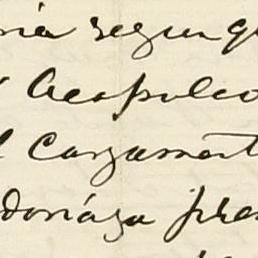 ria segun q
Acapulco
l Cargament
donága pre